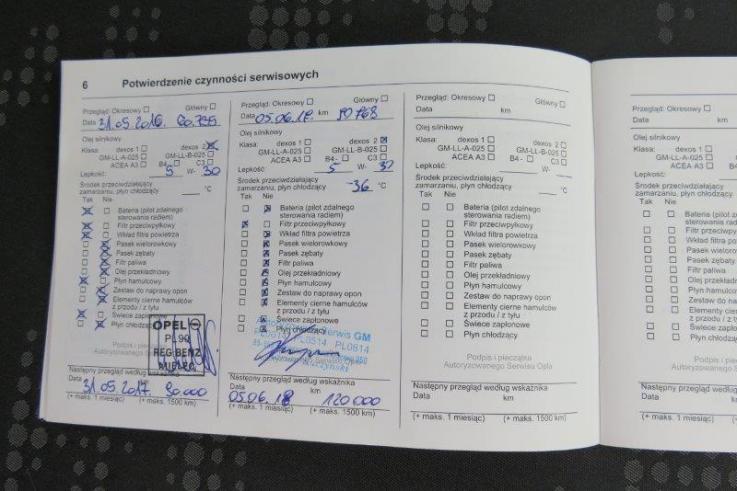 6 Potwierdzenie czynności serwisowych
Przegląd: Okresowy Główny
Data 31.05.2016. 60.735
Olej silnikowy
Klasa: dexos 1 dexos 2
GM-LL-A-025 GM-LL-B-025
ACEA A3 B4- C3
Lepkość: 5 W- 30
Środek przeciwdziałający
zamarzaniu, płyn chłodzący °C
Tak Nie
Bateria (pilot zdalnego
sterowania radiem)
Filtr przeciwpyłkowy
Wkład filtra powietrza
Pasek wielorowkowy
Pasek zębaty
Filtr paliwa
Olej przekładniowy
Płyn hamulcowy
Zestaw do naprawy opon
Elementy cierne hamulców
z przodu / z tyłu
Świece zapłonowe
Płyn chłodzący
OPEL
PL90
REG BENZ
MIELEC
Podpis i
Autoryzowanego
Następny przegląd według wskaźnika
Data km
31.05.2017. 90.000
(+ maks. 1 miesiąc) (+ maks. 1500 km)
Przegląd: Okresowy Główny
Data 05.06.17. km 90768
Olej silnikowy
Klasa: dexos 1 dexos 2
GM-LL-A-025 GM-LL-B-025
ACEA A3 B4- C3
Lepkość 5 W- 30
Środek przeciwdziałający
zamarzaniu, płyn chłodzący -36 °C
Tak Nie
Bateria (pilot zdalnego
sterowania radiem)
Filtr przeciwpyłkowy
Wkład filtra powietrza
Pasek wielorowkowy
Pasek zębaty
Filtr paliwa
Olej przekładniowy
Płyn hamulcowy
Zestaw do naprawy opon
Elementy cierne hamulców
z przodu / z tyłu
Świece zapłonowe
Płyn chłodzący
Serwis GM
PL0514 PL0614
Następny przegląd według wskaźnika
Data km
05.06.18 120000
(+ maks. 1 miesiąc) (+ maks. 1500 km)
Przegląd: Okresowy Główny
Data km
Olej silnikowy
Klasa: dexos 1 dexos 2
GM-LL-A-025 GM-LL-B-025
ACEA A3 B4- C3
Lepkość: W-
Środek przeciwdziałający
zamarzaniu, płyn chłodzący °C
Tak Nie
Bateria (pilot zdalnego
sterowania radiem)
Filtr przeciwpyłkowy
Wkład filtra powietrza
Pasek wielorowkowy
Pasek zębaty
Filtr paliwa
Olej przekładniowy
Płyn hamulcowy
Zestaw do naprawy opon
Elementy cierne hamulców
z przodu / z tyłu
Świece zapłonowe
Płyn chłodzący
Podpis i pieczątka
Autoryzowanego Serwisu Opla
Następny przegląd według wskaźnika
Data km
(+ maks. 1 miesiąc) (+ maks. 1500 km)
Przegląd: Okresowy
Data
Olej silnikowy
Klasa: dexos 1
GM-LL-A-025
ACEA A3
Lepkość:
Środek przeciwdziałający
zamarzaniu, płyn chłodzący
Tak Nie
Bateria (pilot
sterowania
Filtr
Wkład filtra
Pasek
Pasek zębaty
Filtr paliwa
Olej
Płyn
Zestaw do
Elementy
z przodu
Świece
Płyn
Podpis
Autoryzowanego
Następny przegląd według
Data
(+ maks. 1 miesiąc)